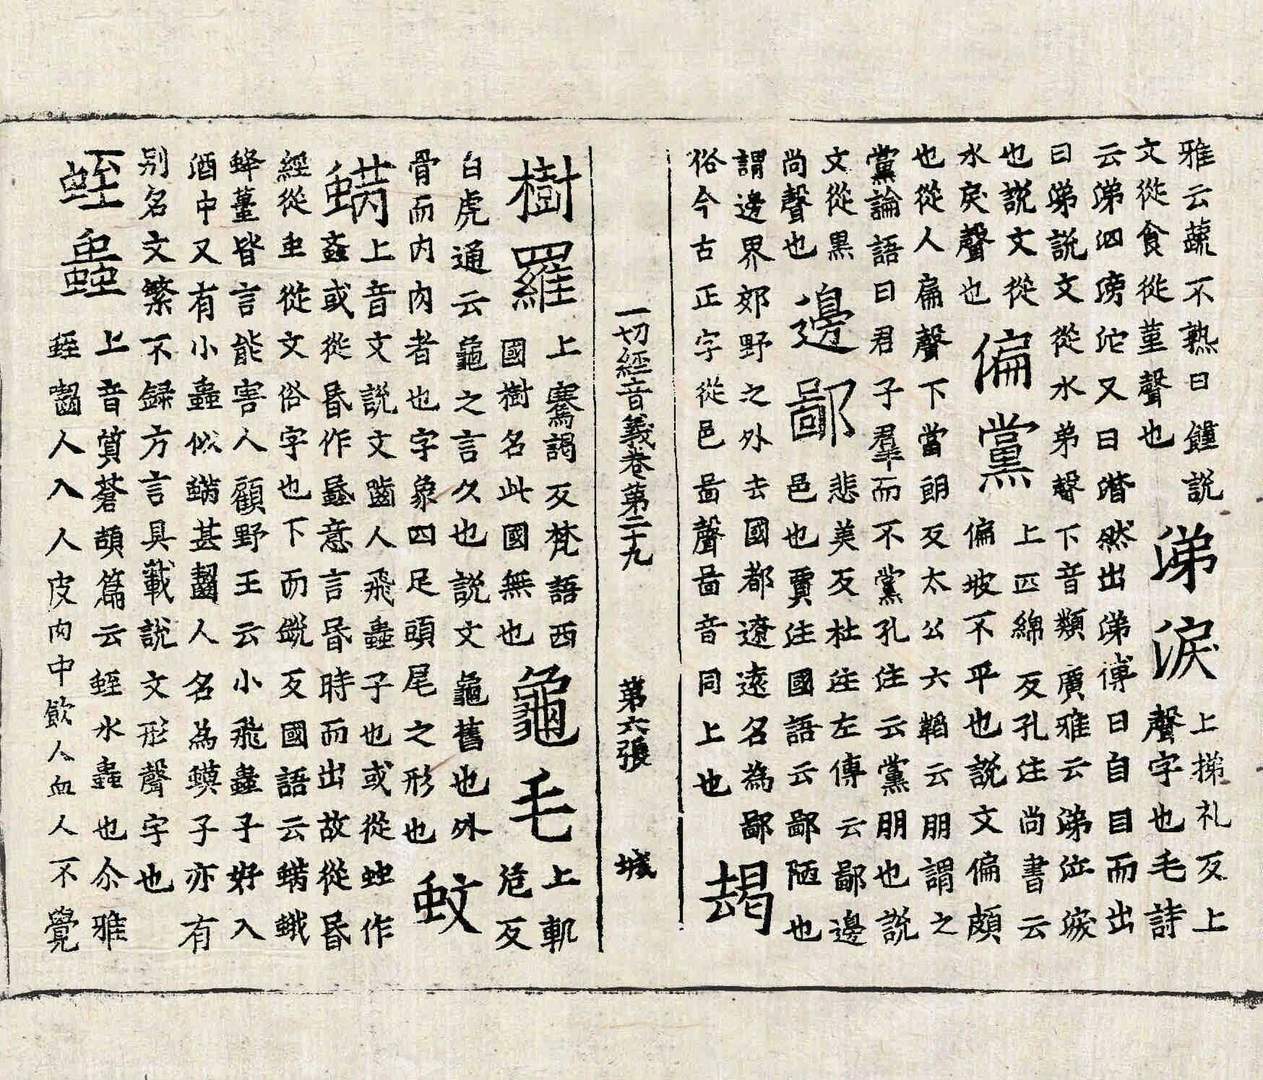 雅云蔬不熟曰饉說
文從食從堇聲也
涕淚
上梯礼反上
聲字也毛詩
云涕泗滂沱又曰潸然出涕傳曰自目而出
曰涕說文從水弟聲下音類廣雅云涕泣淚
也說文從
水戾聲也
偏黨
上匹綿反孔注尚書云
偏坡不平也說文偏頗
也從人扁聲下當朗反太公六韜云朋謂之
黨論語曰君子羣而不黨孔注云黨朋也說
文從黑
尚聲也
邊鄙
悲美反杜注左傳云鄙邊
邑也賈注國語云鄙陋也
謂邊界郊野之外去國都遼遠名為鄙
俗今古正字從邑啚聲啚音同上也
朅
一切經音義卷第二十九 第六張 城
樹羅
上騫謁反梵語西
國樹名此國無也
龜毛
上軌
危反
白虎通云龜之言久也說文龜舊也外
骨而內肉者也字象四足頭尾之形也
蚊
蜹
上音文說文齧人飛蟲子也或從䖵作
䘇或從昏作蟁意言昏時而出故從昏
經從虫從文俗字也下而銳反國語云蜹蛾
蜂蠆皆言能害人顧野王云小飛蟲子好入
酒中又有小蟲似蜹甚齧人名為蟆子亦有
別名文繁不錄方言具載說文形聲字也
蛭蟲
上音質蒼頡篇云蛭水蟲也尒雅
蛭齧人入人皮肉中飲人血人不覺